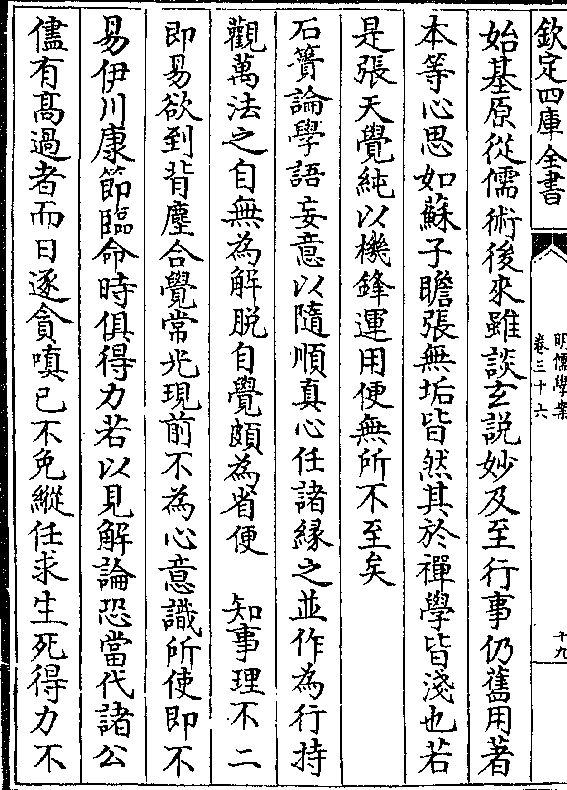 欽定四庫全書
明儒學案
卷三十六
十九
始基原從儒術後來雖談玄說妙及至行事仍舊用著
本等心思如蘇子瞻張無垢皆然其於禪學皆淺也若
是張天覺純以機鋒運用便無所不至矣
石簣論學語妄意以隨順真心任諸緣之並作為行持
觀萬法之自無為解脫自覺頗為省便 知事理不二
即易欲到背塵合覺常光現前不為心意識所使即不
易伊川康節臨命時俱得力若以見解論恐當代諸公
儘有髙過者而日逐貪嗔已不免縱任求生死得力不